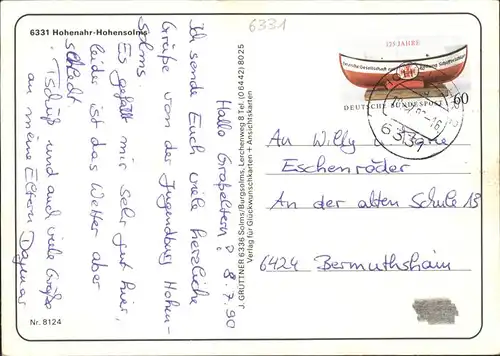 6331 Hohenahr-Hohensolms
6331
Hallo Großeltern! 8.7.90
Ich sende Euch viele herzliche
Grüße von der Jugendburg Hohen-
solms
Es gefällt mir sehr gut hier,
leider ist das Wetter aber
schlecht.
Tschüß und auch viele Grüße
an meine Eltern Dagmar
Nr. 8124
J. GRUTTNER 6336 Solms/Burgsolms, Lerchenweg 8 Tel. (0 64 42) 80 25
Verlag für Glückwunschkarten + Ansichtskarten
125 JAHRE
Deutsche Gesellschaft zur Rettung Schiffbrüchiger
DEUTSCHE BUNDESPOST
60
633
An Willy u.
Eschenröder
An der alten Schule 13
6424 Bermuthshain